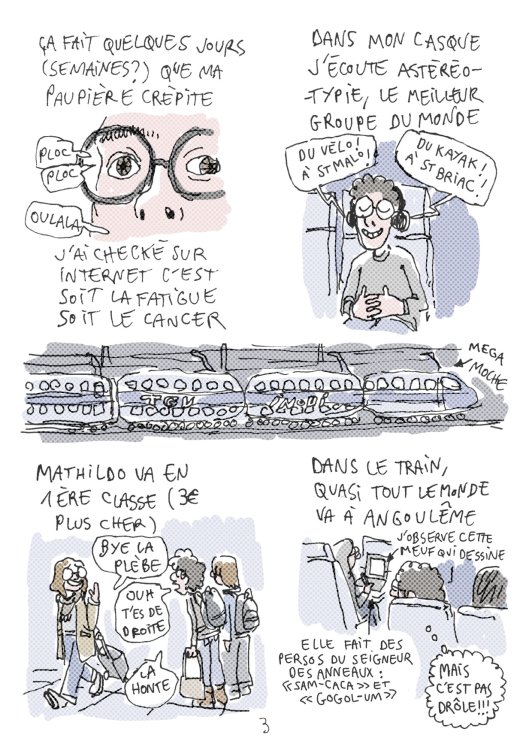 ÇA FAIT QUELQUES JOURS
(SEMAINES?) QUE MA
PAUPIÈRE CRÉPITE
PLOC
PLOC
OULALA
J'AI CHECKÉ SUR
INTERNET C'EST
SOIT LA FATIGUE
SOIT LE CANCER
DANS MON CASQUE
J'ÉCOUTE ASTÉRÉO-
TYPIE, LE MEILLEUR
GROUPE DU MONDE
DU VÉLO!
À ST MALO!
DU KAYAK!
À ST BRIAC!
MEGA
MOCHE
MATHILDO VA EN
1ÈRE CLASSE (3€
PLUS CHER)
BYE LA
PLÈBE
OUH
T'ES DE
DROITE
LA
HONTE
DANS LE TRAIN,
QUASI TOUT LE MONDE
VA À ANGOULÊME
J'OBSERVE CETTE
MEUF QUI DESSINE
ELLE FAIT DES
PERSOS DU SEIGNEUR
DES ANNEAUX :
«SAM-CACA» ET
«GOGOL-UM»
MAIS
C'EST PAS
DRÔLE!!!
3